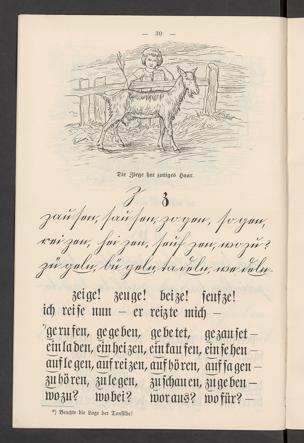 — 30 —
Die Ziege hat zottiges Haar.
z z
zausen, sausen, zogen, sogen,
reizen, heizen, seufzen, wozu?
zügeln, bügeln, tadeln, wedeln
zeige! zeuge! beize! seufze!
ich reise nun — er reizte mich —
*gerufen, gegeben, gebetet, gezauset —
einladen, einheizen, einkaufen, einsehen —
auflegen, aufreizen, aufhören, aufsagen —
zuhören, zulegen, zuschauen, zugeben —
wozu? wobei? woraus? wofür? —
*) Beachte die Lage der Tonsilbe!